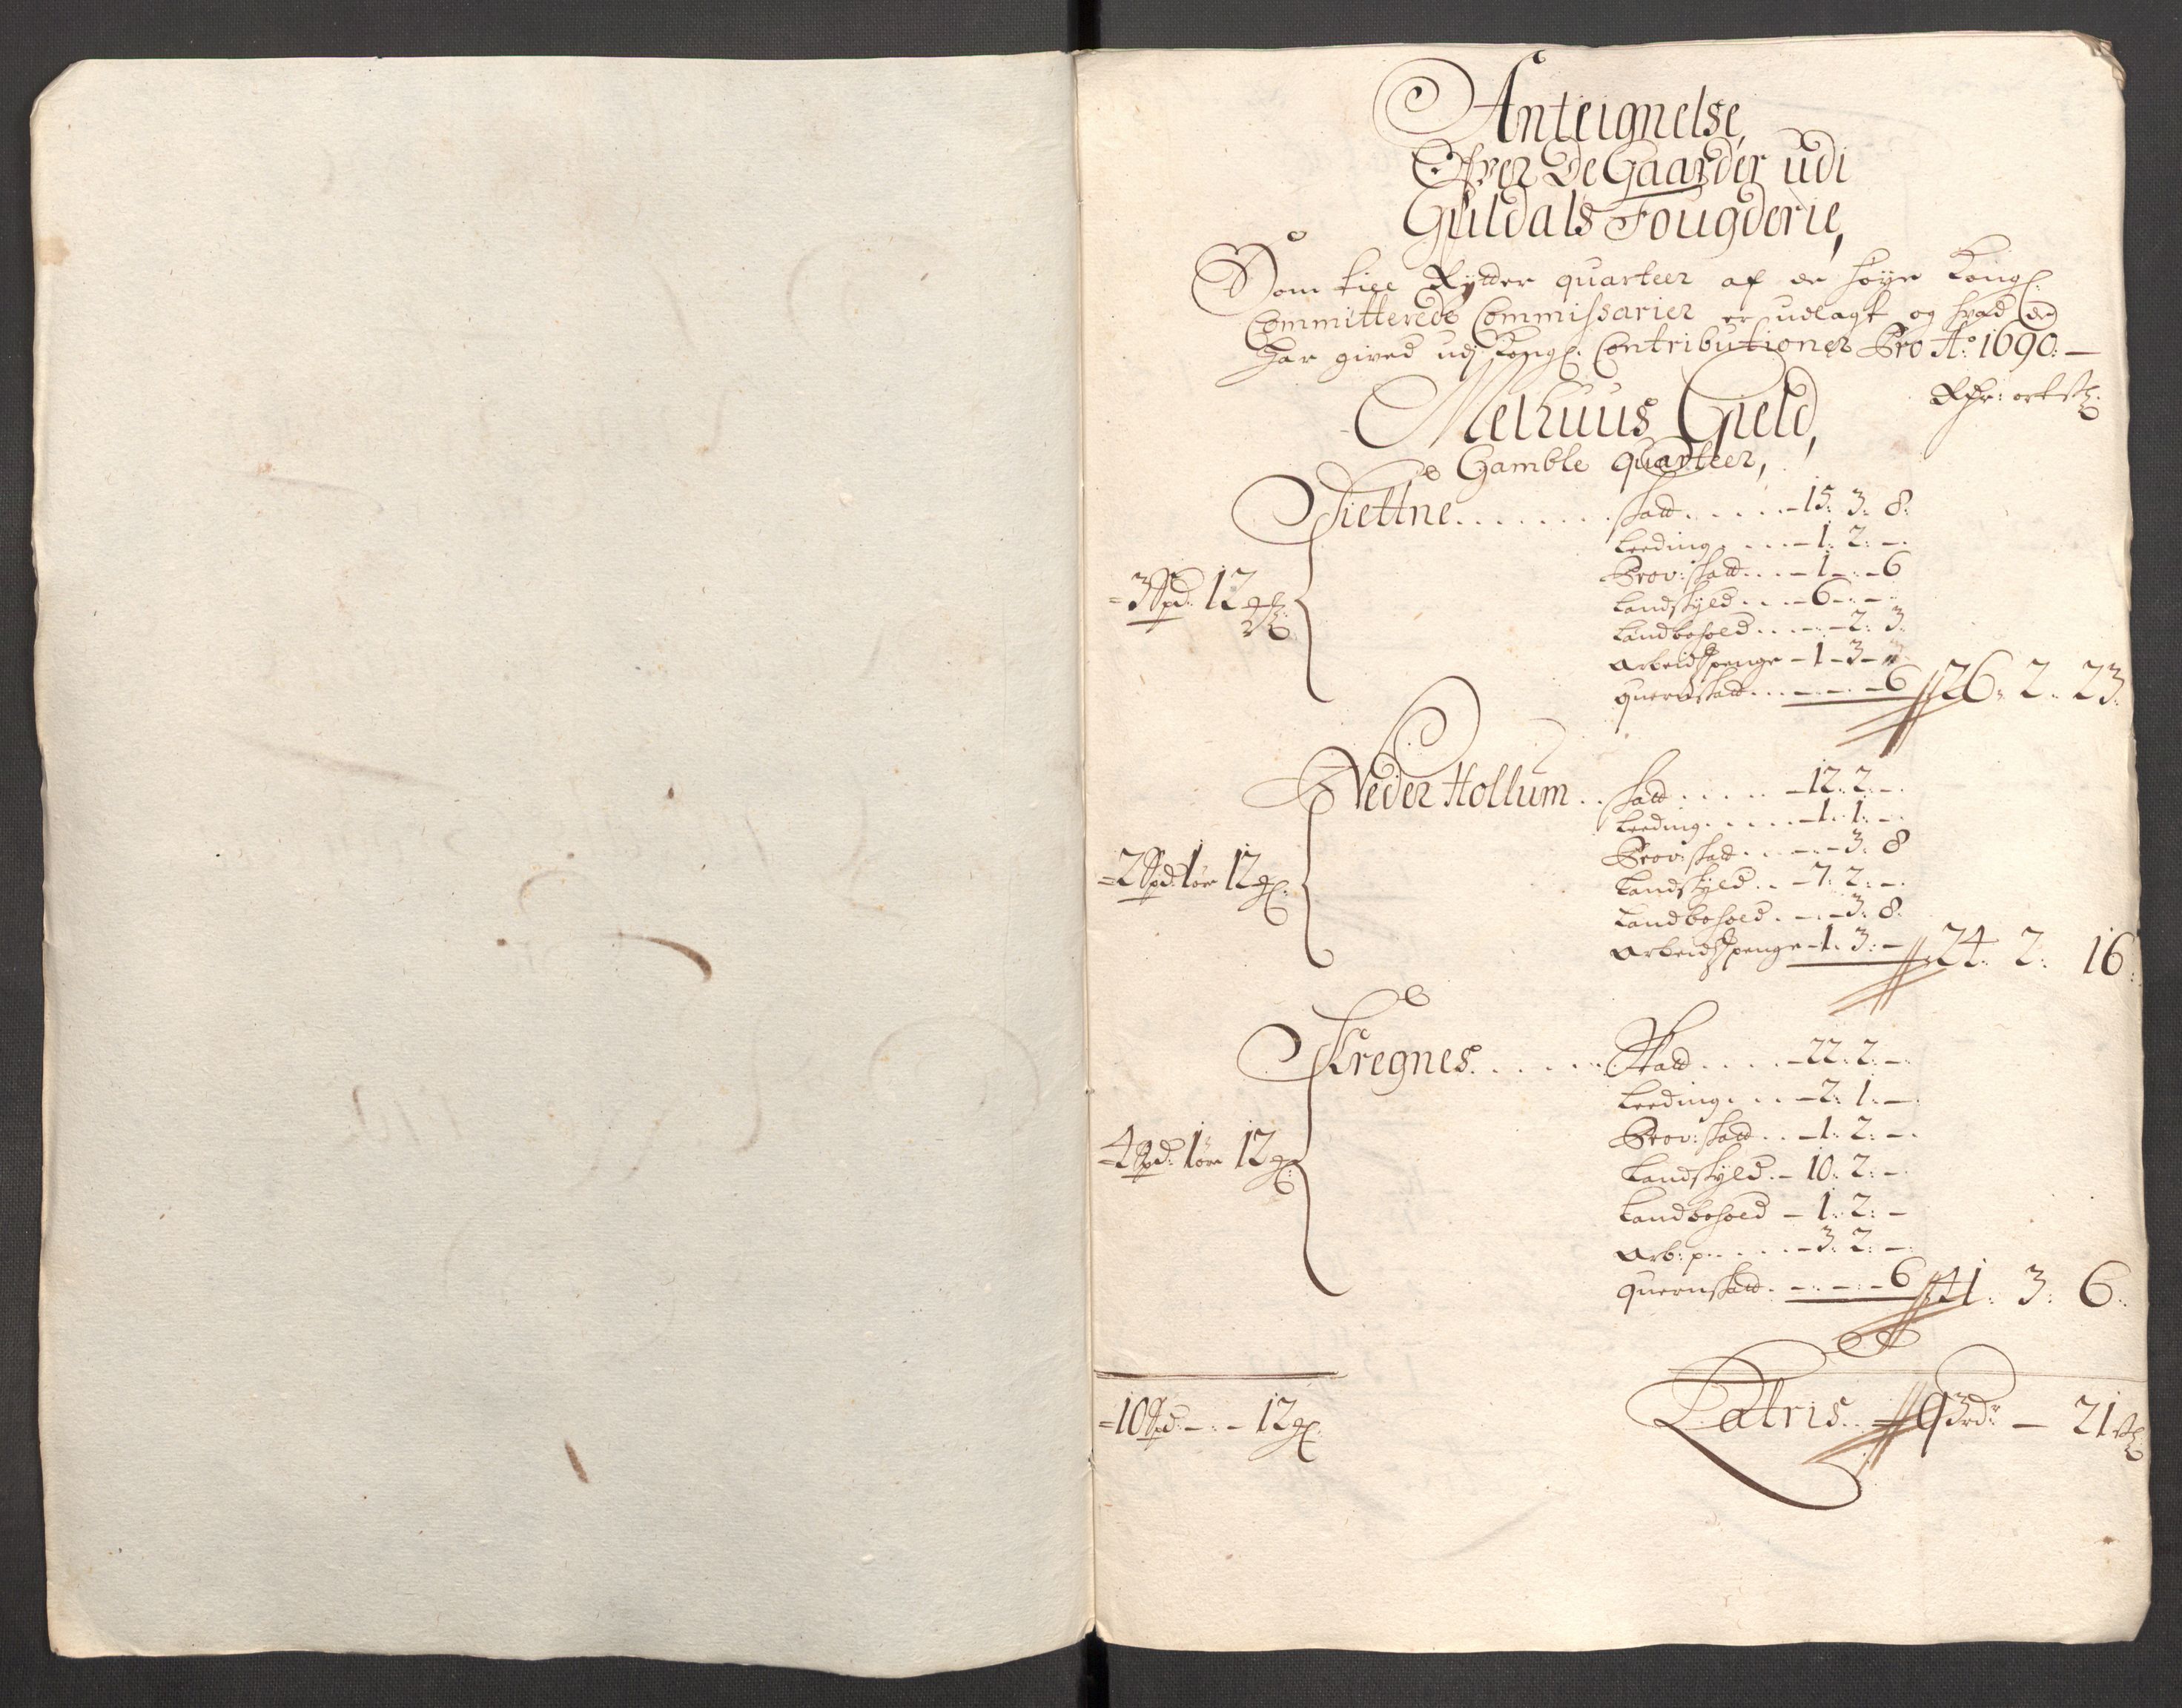 Anteignelse,
Ofver De Gaarder udi
Guldals Fougderie,
Som till Rytter quarteer af de høye Kongl:
Committerede Commissarier er udlagt og hvad de
har gived udj Kongl: Contributioner Pro Ao 1690:—
Rdr: ort s:
Melhuus Gield,
Gamble quarteer,
Siettne....... skatt.....— 15: 3: 8:
Leeding....— 1: 2: —.
Prov: skatt...— 1 —:— 6
Landskyld...— 6 —:—:
Landbohold...—:— 2: 3.
Arbeidspenge — 1 — 3 —
= 3 Spd: 12 ml:
quernskatt...—.—.— 6 // 26: 2: 23:
Neder Hollum.. skatt.....— 12: 2: —.
Leeding.....— 1: 1: —.
Prov: skatt...—:— 3: 8
= 2 Spd: 1 øre 12 ml:
Landskyld..— 7: 2: —.
Landbohold.—:— 3: 8:
Arbeidspenge — 1: 3: — // 24: 2: 16:
Kregnes...... Skatt....— 22: 2: —.
Leeding...— 2: 1: —.
Prov: skatt..— 1: 2: —.
= 4 Spd: 1 øre 12 ml:
Landskyld.— 10: 2: —.
Landbohold — 1: 2: —
Arb: p.....— 3: 2: —.
quernskatt.—.—:— 6 // 41: 3: 6:
= 10 Spd —:— 12 ml:
Latris.. // 93 rdr — 21 s